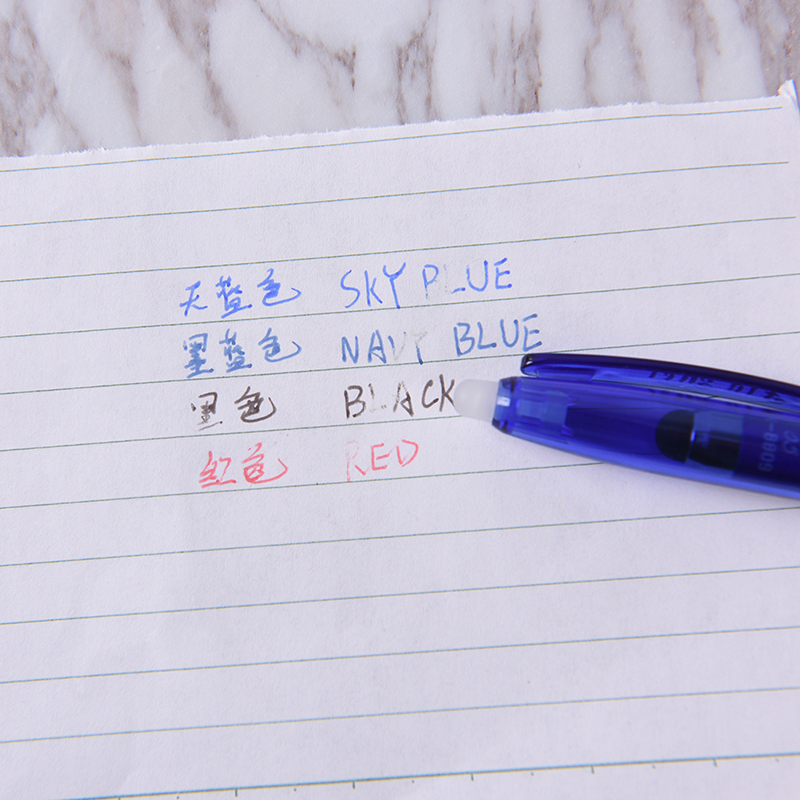 天蓝色 SKY BLUE
墨蓝色 NAVY BLUE
黑色 BLACK
红色 RED